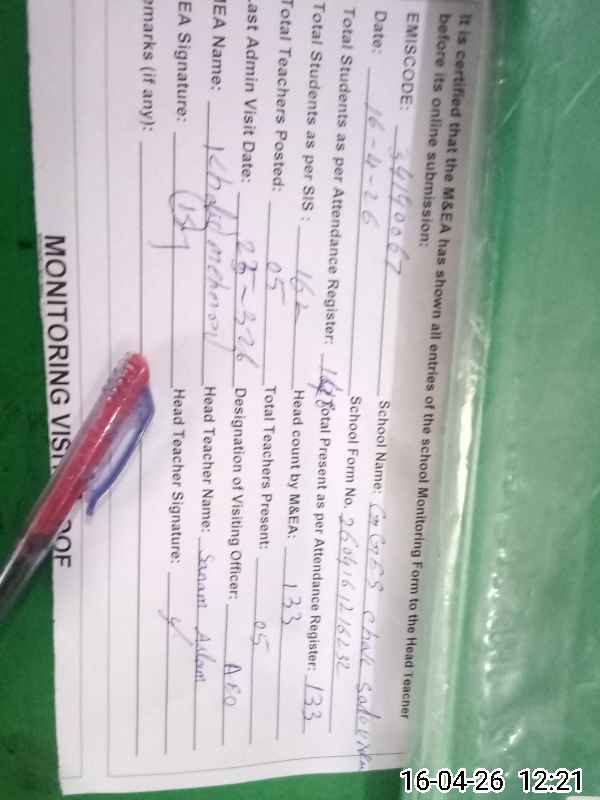 It is certified that the M&EA has shown all entries of the school Monitoring Form to the Head Teacher
before its online submission:
EMISCODE: 34190067 School Name: GGES Chak
Date: 16-4-26 School Form No. 2604161216232
Total Students as per Attendance Register: Total Present as per Attendance Register: 133
Total Students as per SIS: 162 Head count by M&EA: 133
Total Teachers Posted: 05 Total Teachers Present: 05
Last Admin Visit Date: Designation of Visiting Officer: AEO
EA Name: Khalid Head Teacher Name: Sanam Aslam
EA Signature: Head Teacher Signature:
marks (if any):
MONITORING VISI OOF
16-04-26 12:21